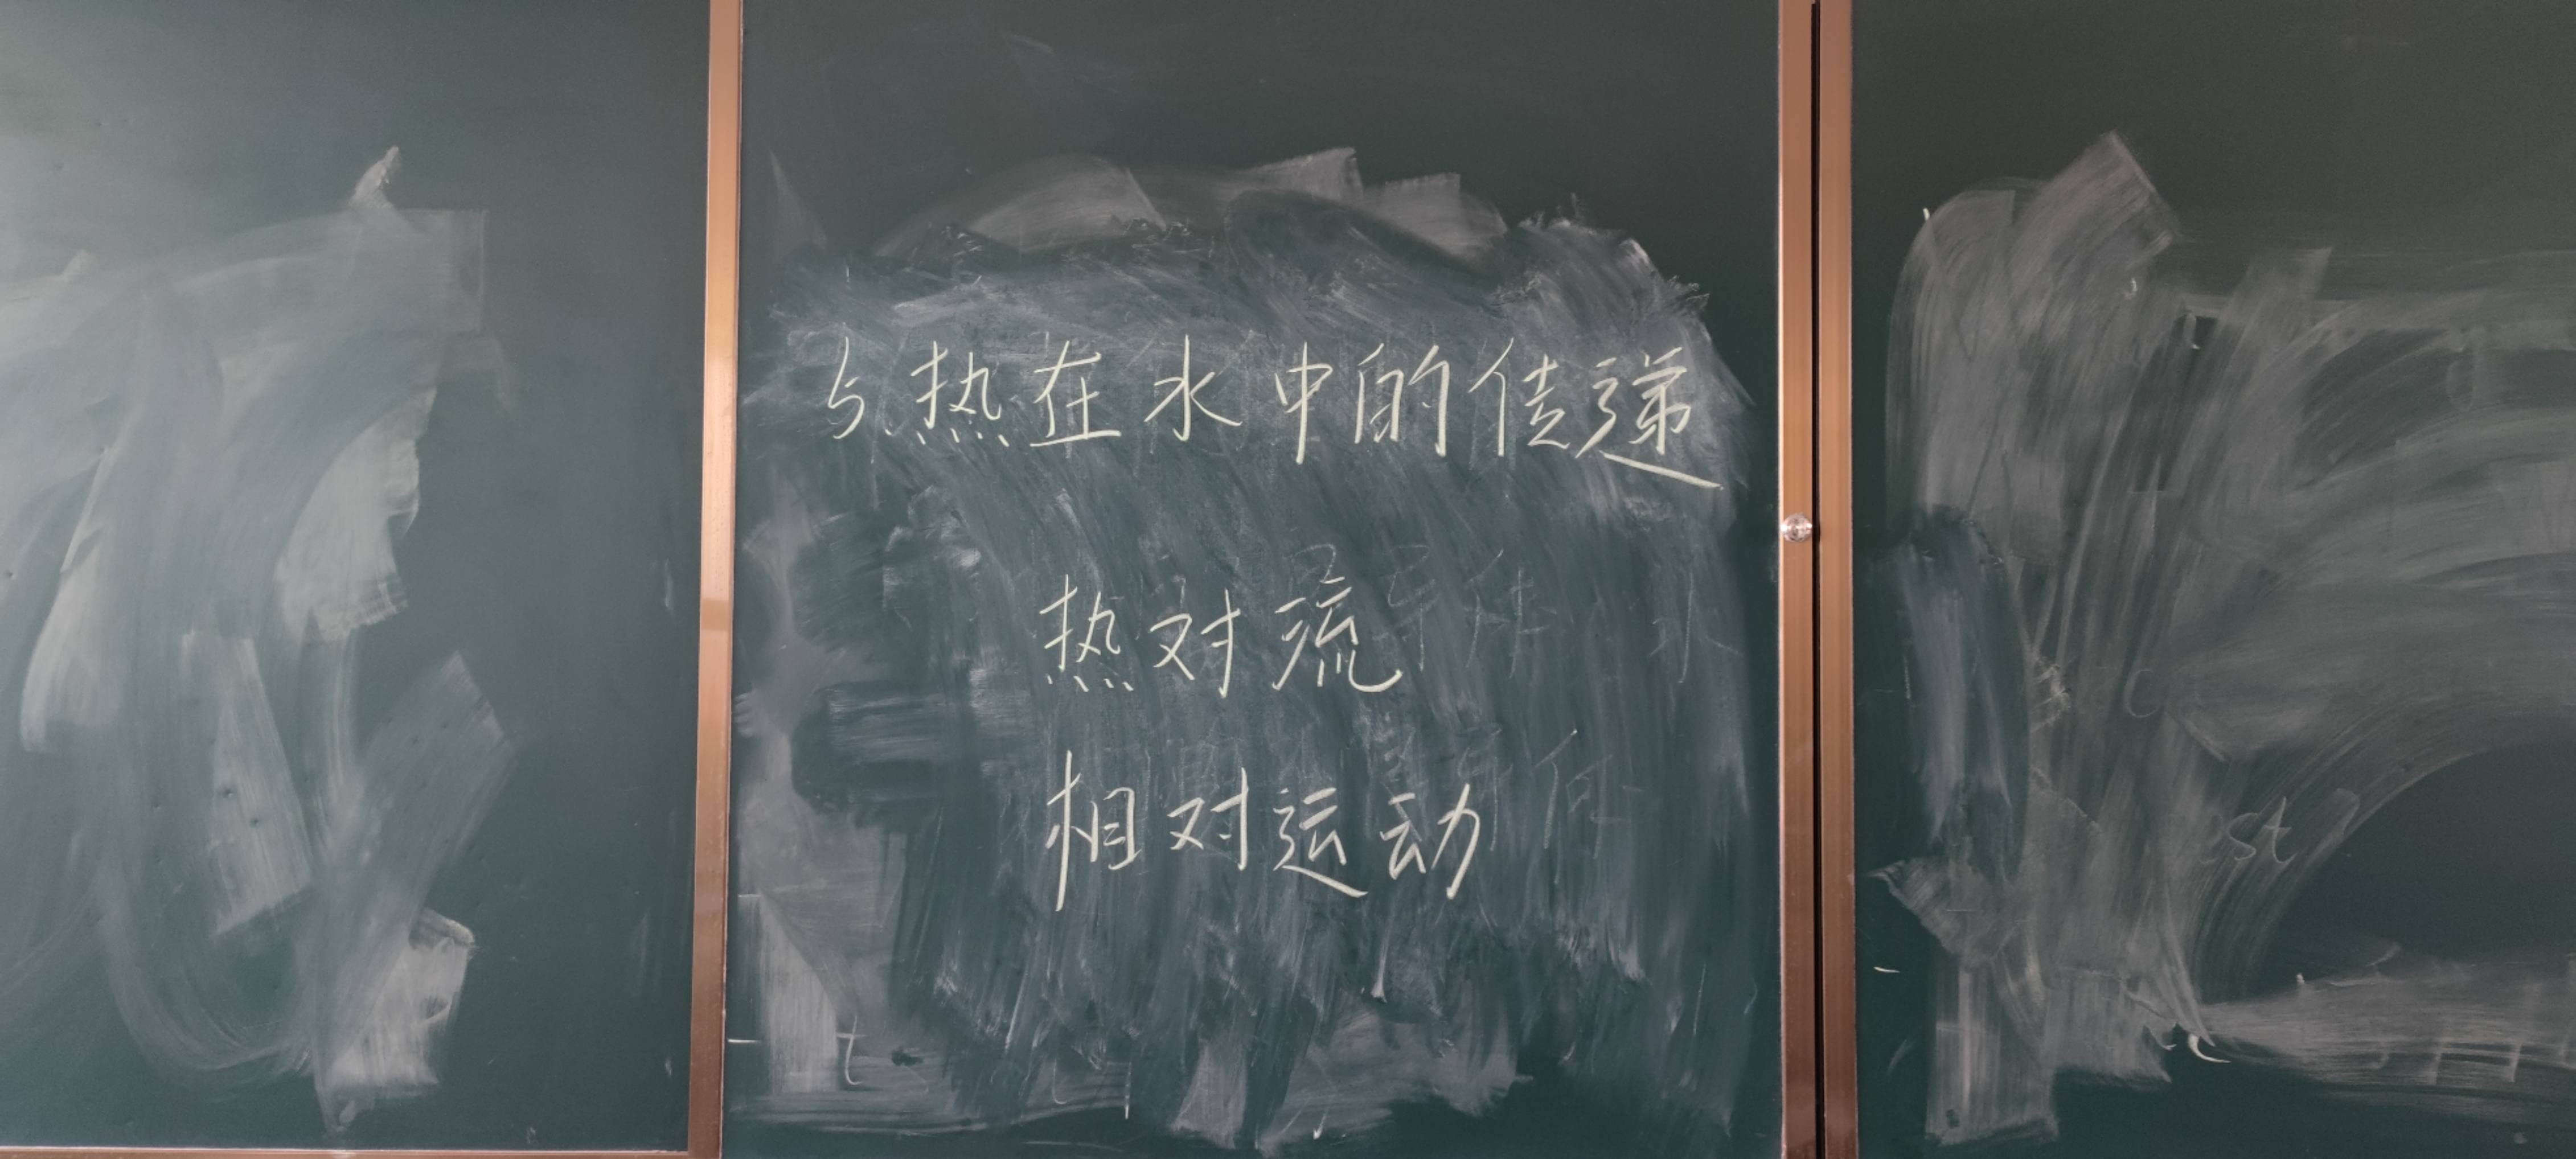 5.热在水中的传递
热对流
相对运动
est